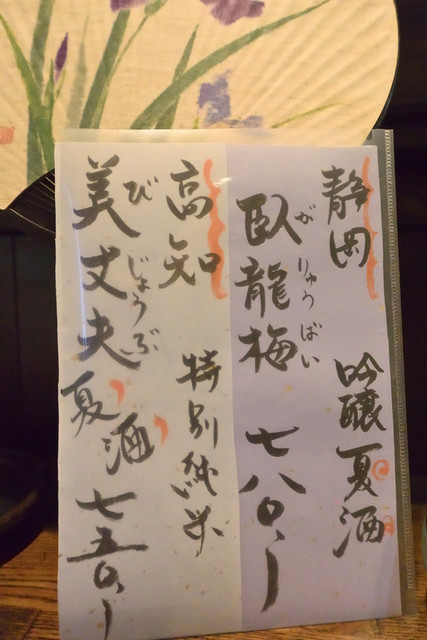 静岡
吟醸夏酒
臥龍梅 七八〇、ー
がりゅうばい
高知
特別純米
美丈夫
びじょうぶ
夏酒 七五〇、ー